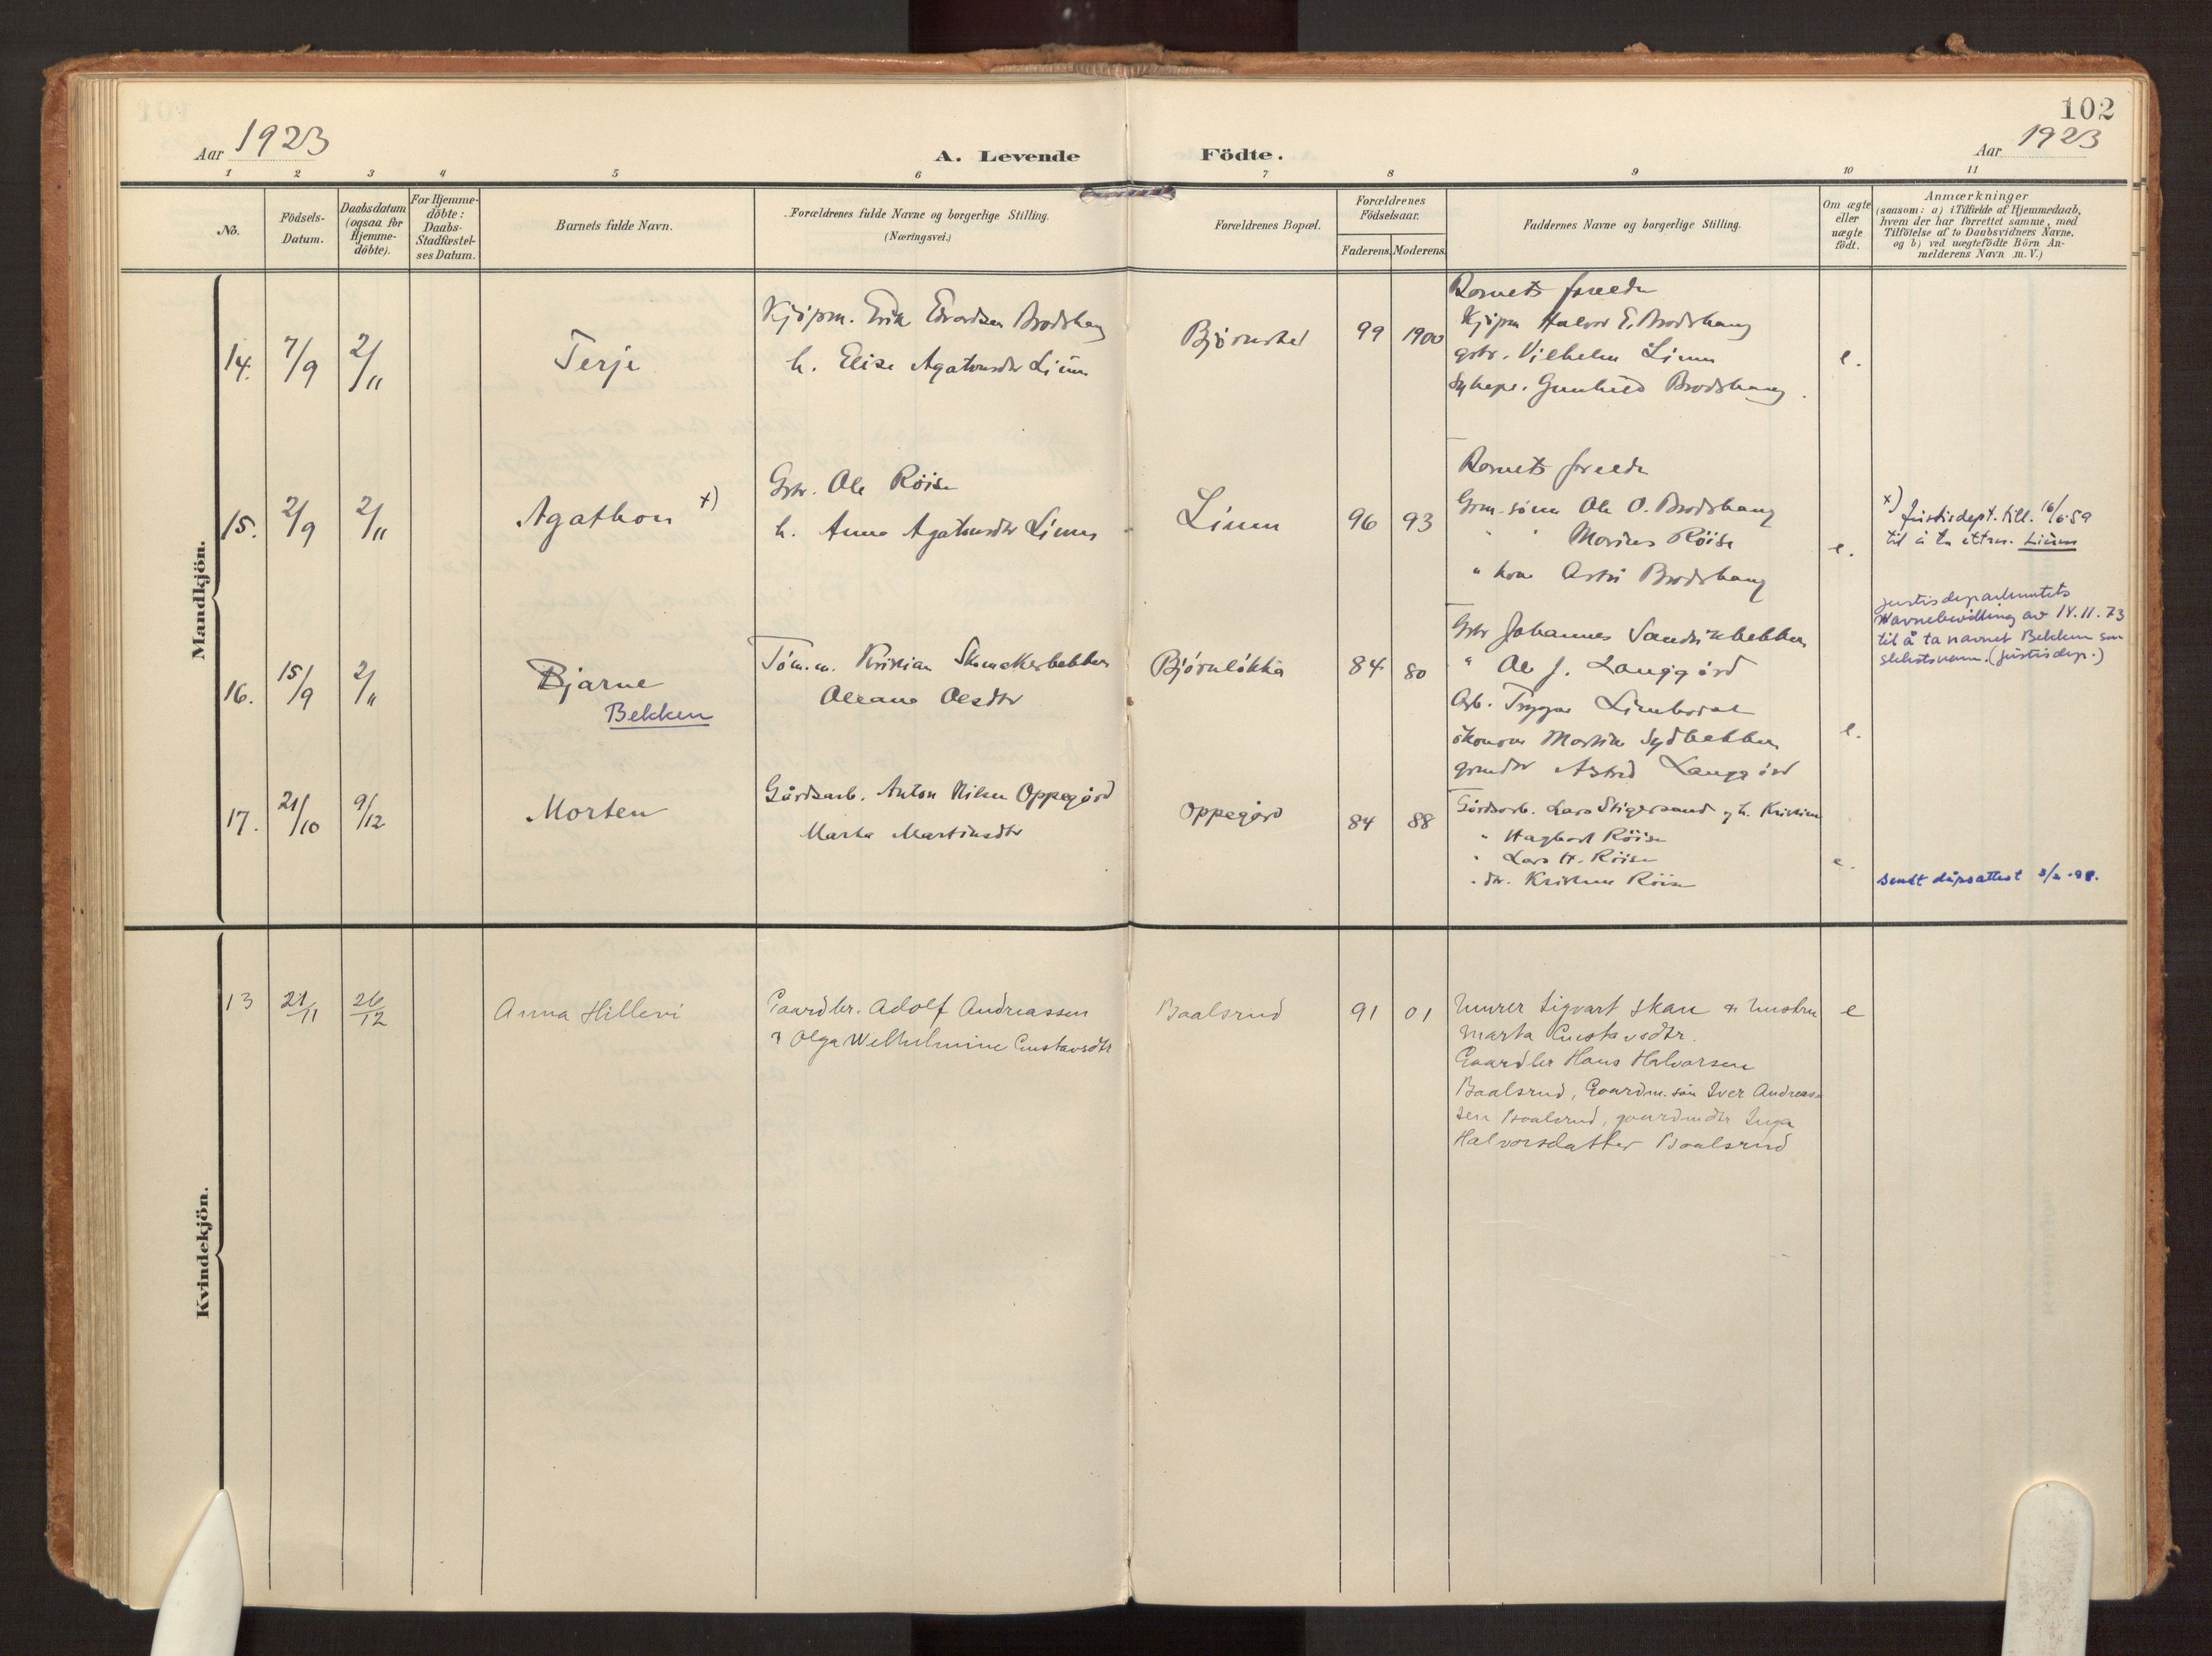 102
Aar 1923
A. Levende Födte.
Aar 1923
1 2 3 4 5 6 7 8 9 10 11
No.
Födsels-
Datum.
Daabsdatum
(ogsaa for
Hjemme-
döbte).
For Hjemme-
döbte:
Daabs-
Stadfæstel-
ses Datum.
Barnets fulde Navn.
Forældrenes fulde Navne og borgerlige Stilling.
(Næringsvei.)
Forældrenes Bopæl.
Forældrenes
Födselsaar.
Faderens. Moderens.
Faddernes Navne og borgerlige Stilling.
Om ægte
eller
uægte
födt.
Anmærkninger
(saasom: a) i Tilfælde af Hjemmedaab,
hvem der har forrettet samme, med
Tilföielse af to Daabsvidners Navne,
og b) ved uægtefödte Börn An-
melderens Navn m. V.)
Mandkjön.
14. 7/9 2/11
Terje
Kjöpm. Erik Edvardsen Brodshaug
h. Elise Agatonsdtr Lium
99 1900
Barnets foreldre
Kjöpm Halvor E. Brodshaug
gbr. Vilhelm Lium
Gunhild Brodshaug
e.
15. 2/9 2/11
Agathon x)
Gbr. Ole Röise
h. Anna Agatonsdtr Lium
Lium
96 93
Barnets foreldre
Grm. sönn Ole O. Brodshaug
" " Marius Röise
" kone Astri Brodshaug
e.
x)
Justisdept. till. 16/6 59
til å ta ettern. Lium
16. 15/9 2/11
Bjarne
Bekken
Töm.m. Kristian Skomakerbakken
Oleane Olesdtr
Björnlökka
84 80
Gbr Johannes Sandvikbakken
" Ole J. Langgård
Arb. Trygve
ökonom Martin Sydbakken
grmdtr Astrid Langgård
e.
Justisdepartementets
Navnebevilling av 14.11.73
til å ta navnet Bekken som
slektsnavn. (Justisdep.)
17. 21/10 9/12
Morten
Gårdsarb. Anton Nilsen Oppegård
Marta Martinsdtr
Oppegård
84 88
Gårdsarb. Lars Stigersand og h. Kristine
" Hagbart Röise
" Lars H. Röise
" dtr. Kristine Röise
e.
Sendt dåpsattest
Kvindekjön.
13 21/11 26/12
Anna Hillevi
Gaardbr. Adolf Andreassen
& Olga Welhelmine Gustavsdtr
Baalsrud
91 01
Murer Sigvart Skau & hustru
Marta Gustavsdtr.
Gaardbr Hans Halvorsen
Baalsrud, Gaardm. sön Iver Andreas-
sen Baalsrud, gaardmdtr Inga
Halvorsdatter Baalsrud
e